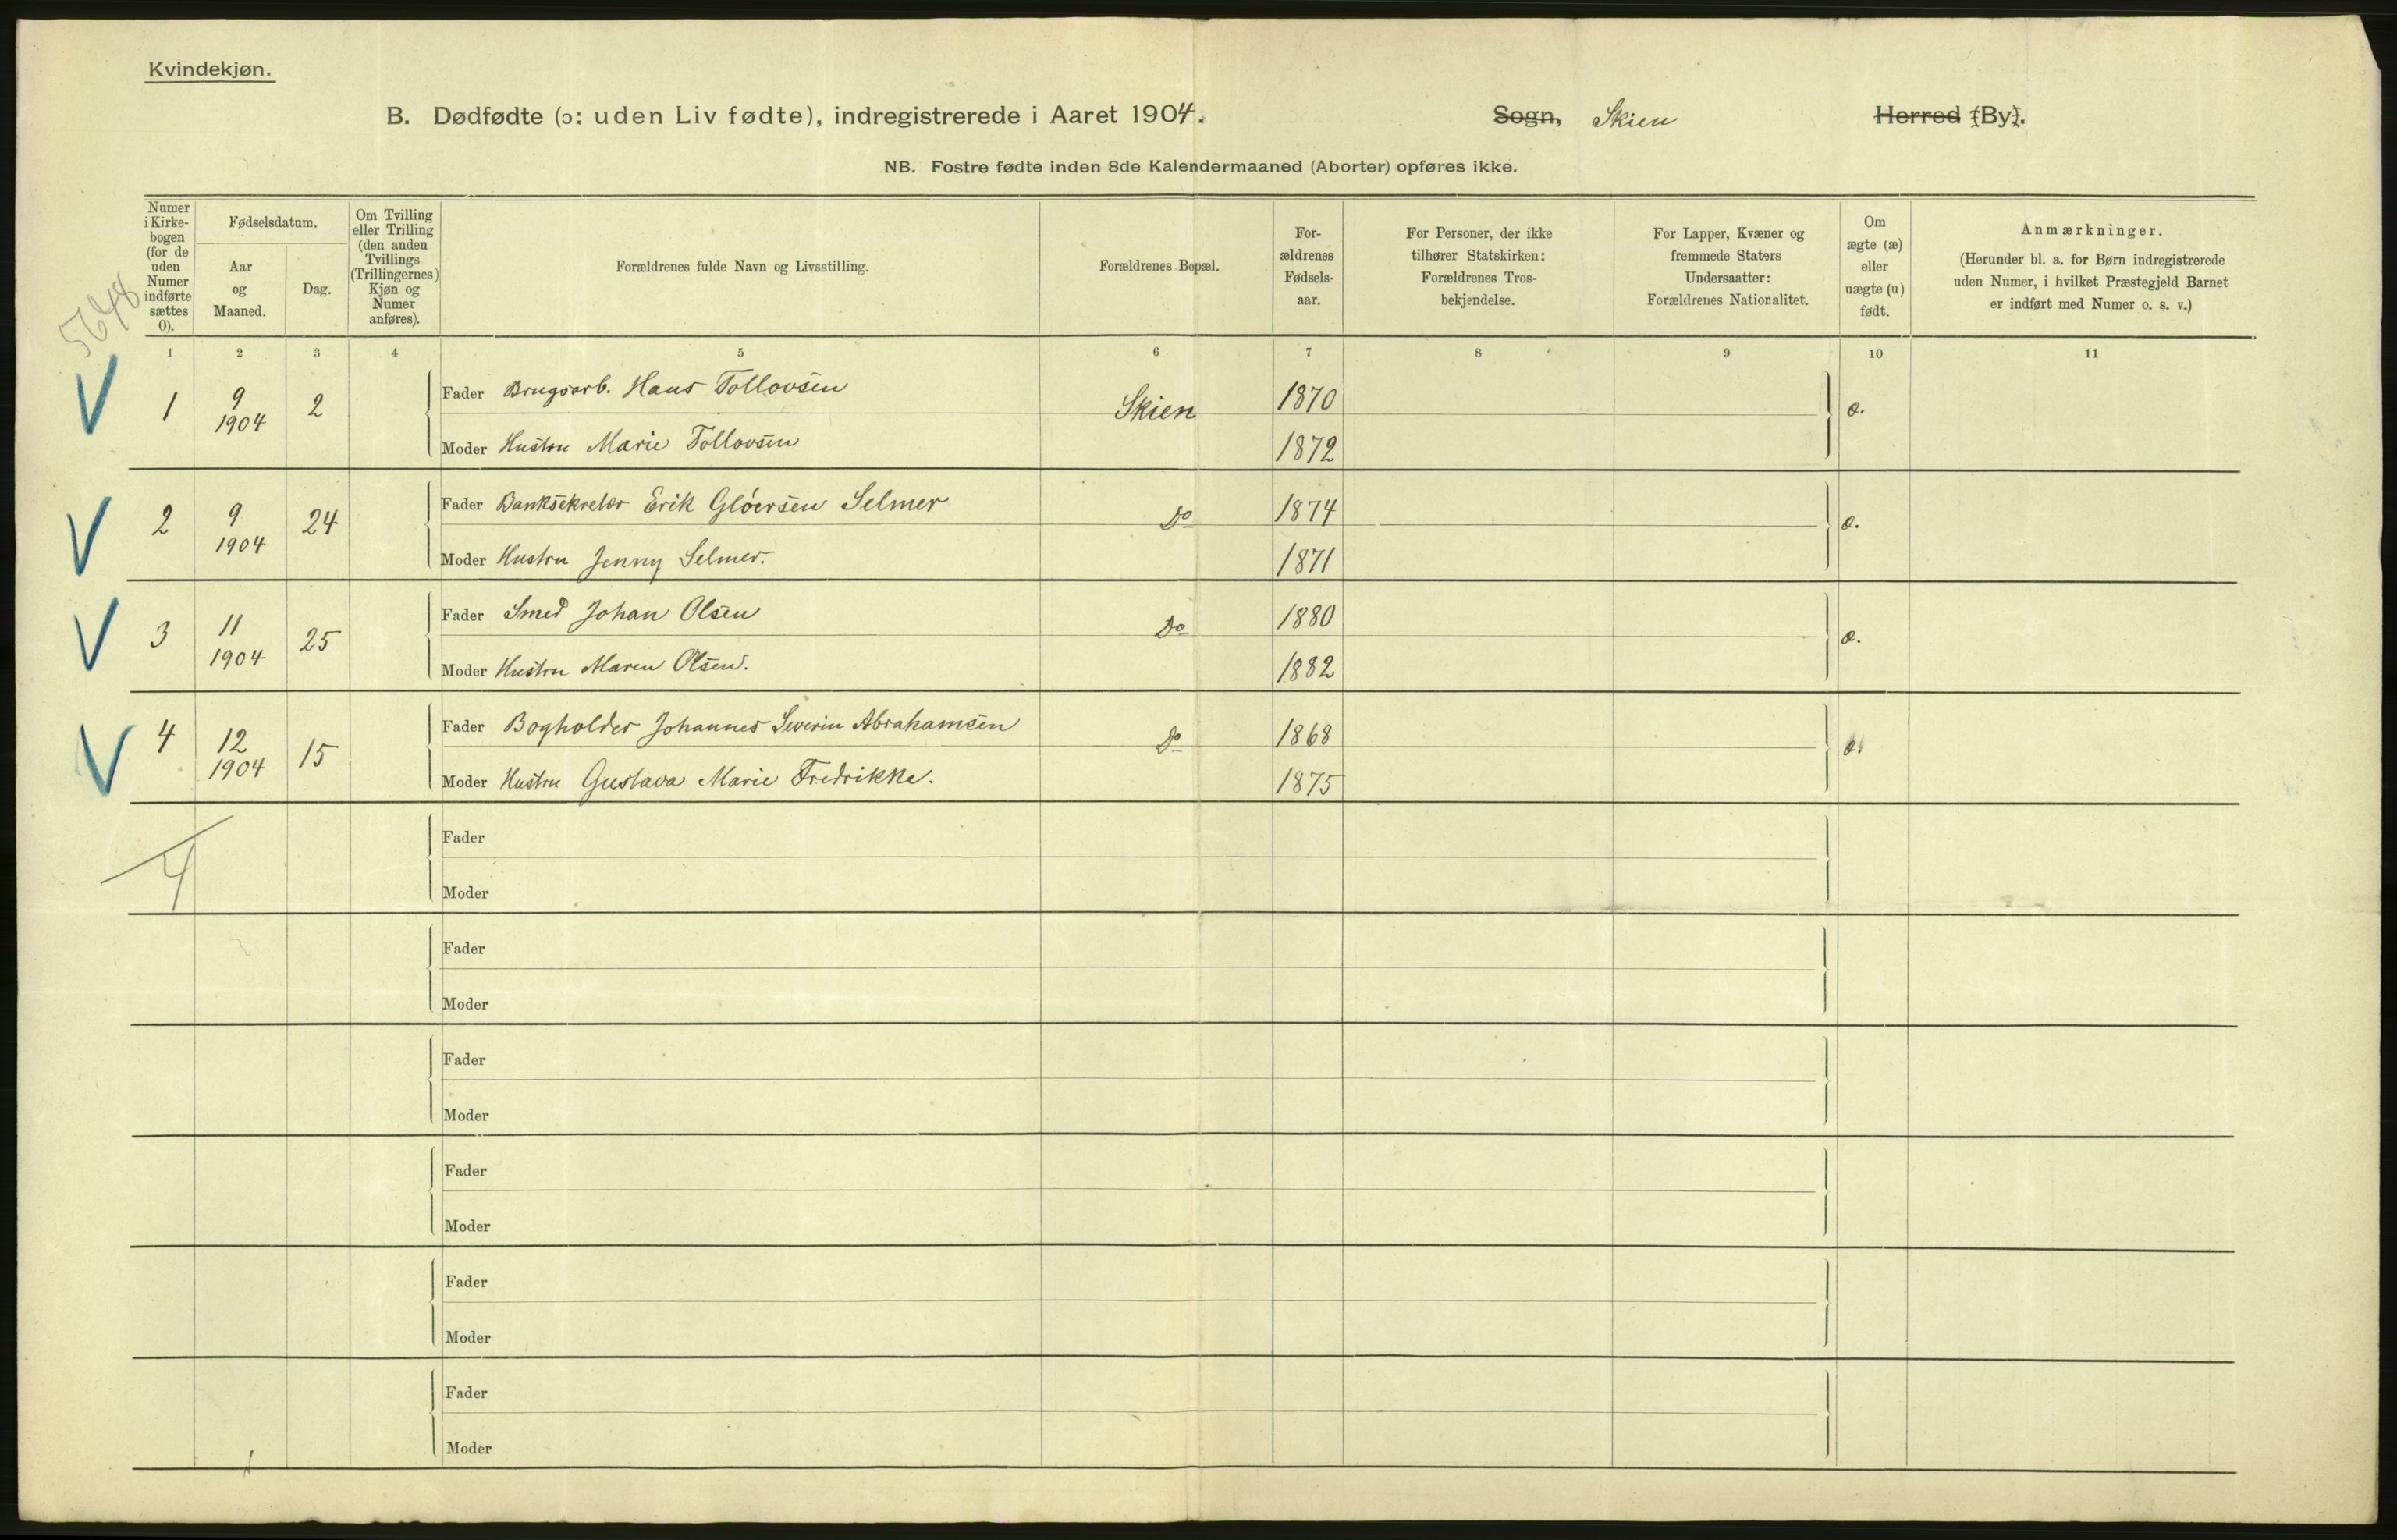 Kvindekjøn.
B. Dødfødte (ɔ: uden Liv fødte), indregistrerede i Aaret 1904. Sogn, Skien Herred (By).
NB. Fostre fødte inden 8de Kalendermaaned (Aborter) opføres ikke.
5648
Numer
i Kirke-
bogen
(for de
uden
Numer
indførte
sættes
0).
Fødselsdatum.
Aar
og
Maaned.
Dag.
Om Tvilling
eller Trilling
(den anden
Tvillings
(Trillingernes)
Kjøn og
Numer
anføres).
Forældrenes fulde Navn og Livsstilling.
Forældrenes Bopæl.
For-
ældrenes
Fødsels-
aar.
For Personer, der ikke
tilhører Statskirken:
Forældrenes Tros-
bekjendelse.
For Lapper, Kvæner og
fremmede Staters
Undersaatter:
Forældrenes Nationalitet.
Om
ægte (æ)
eller
uægte (u)
født.
Anmærkninger.
(Herunder bl. a. for Børn indregistrerede
uden Numer, i hvilket Præstegjeld Barnet
er indført med Numer o. s. v.)
1 2 3 4 5 6 7 8 9 10 11
V 1 9 1904 2 Fader Brugsarb. Hans Tollovsen Skien 1870 æ.
Moder Hustru Marie Tollovsen 1872
V 2 9 1904 24 Fader Banksekretær Erik Gløersen Selmer Do 1874 æ.
Moder Hustru Jenny Selmer. 1871
V 3 11 1904 25 Fader Smed Johan Olsen Do 1880 æ.
Moder Hustru Maren Olsen. 1882
V 4 12 1904 15 Fader Bogholder Johannes Severin Abrahamsen Do 1868 æ.
Moder Hustru Gustava Marie Fredrikke. 1875
4
Fader
Moder
Fader
Moder
Fader
Moder
Fader
Moder
Fader
Moder
Fader
Moder